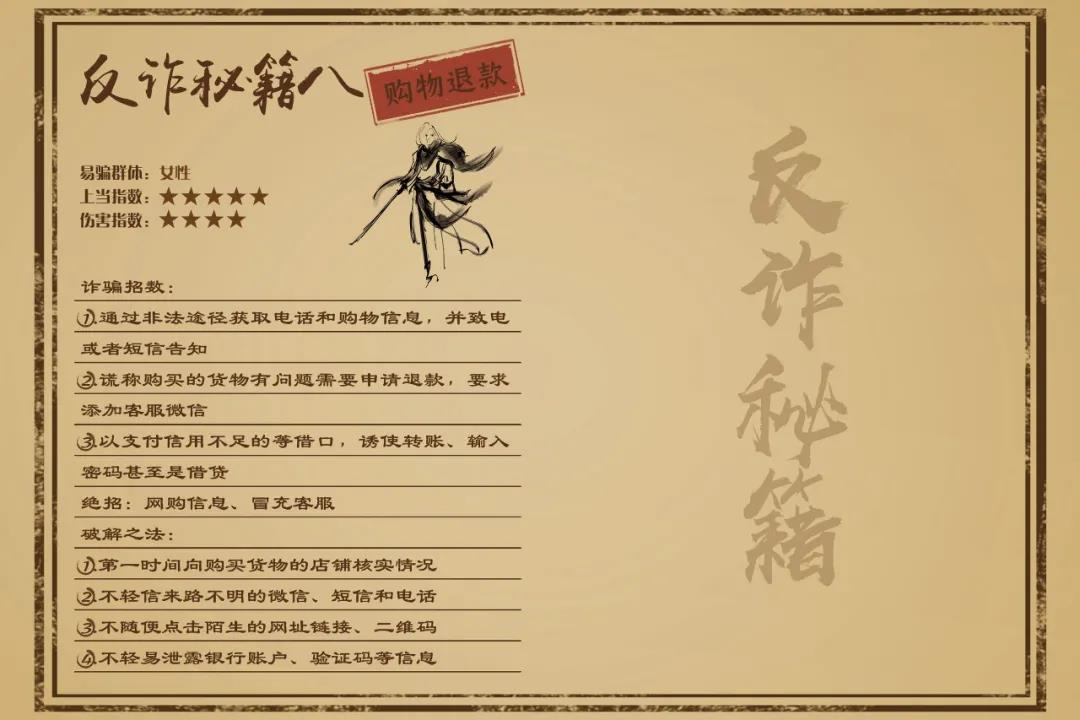 反诈秘籍八
购物退款
易骗群体：女性
上当指数：★★★★★
伤害指数：★★★★
诈骗招数：
①.通过非法途径获取电话和购物信息，并致电
或者短信告知
②.谎称购买的货物有问题需要申请退款，要求
添加客服微信
③.以支付信用不足的等借口，诱使转账、输入
密码甚至是借贷
绝招：网购信息、冒充客服
破解之法：
①.第一时间向购买货物的店铺核实情况
②.不轻信来路不明的微信、短信和电话
③.不随便点击陌生的网址链接、二维码
④.不轻易泄露银行账户、验证码等信息
反诈秘籍